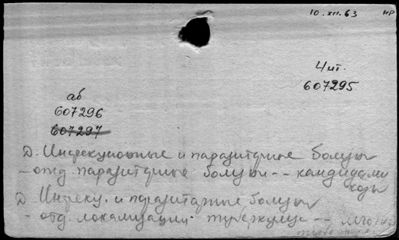 10.XII.63 НР
Чит.
607295
аб
607296
607297
Д. Инфекционные и паразитарные болезни
– отд. паразитарные болезни --
Д Инфекц. и паразитарные болезни
– отд. локализации туберкулеза --